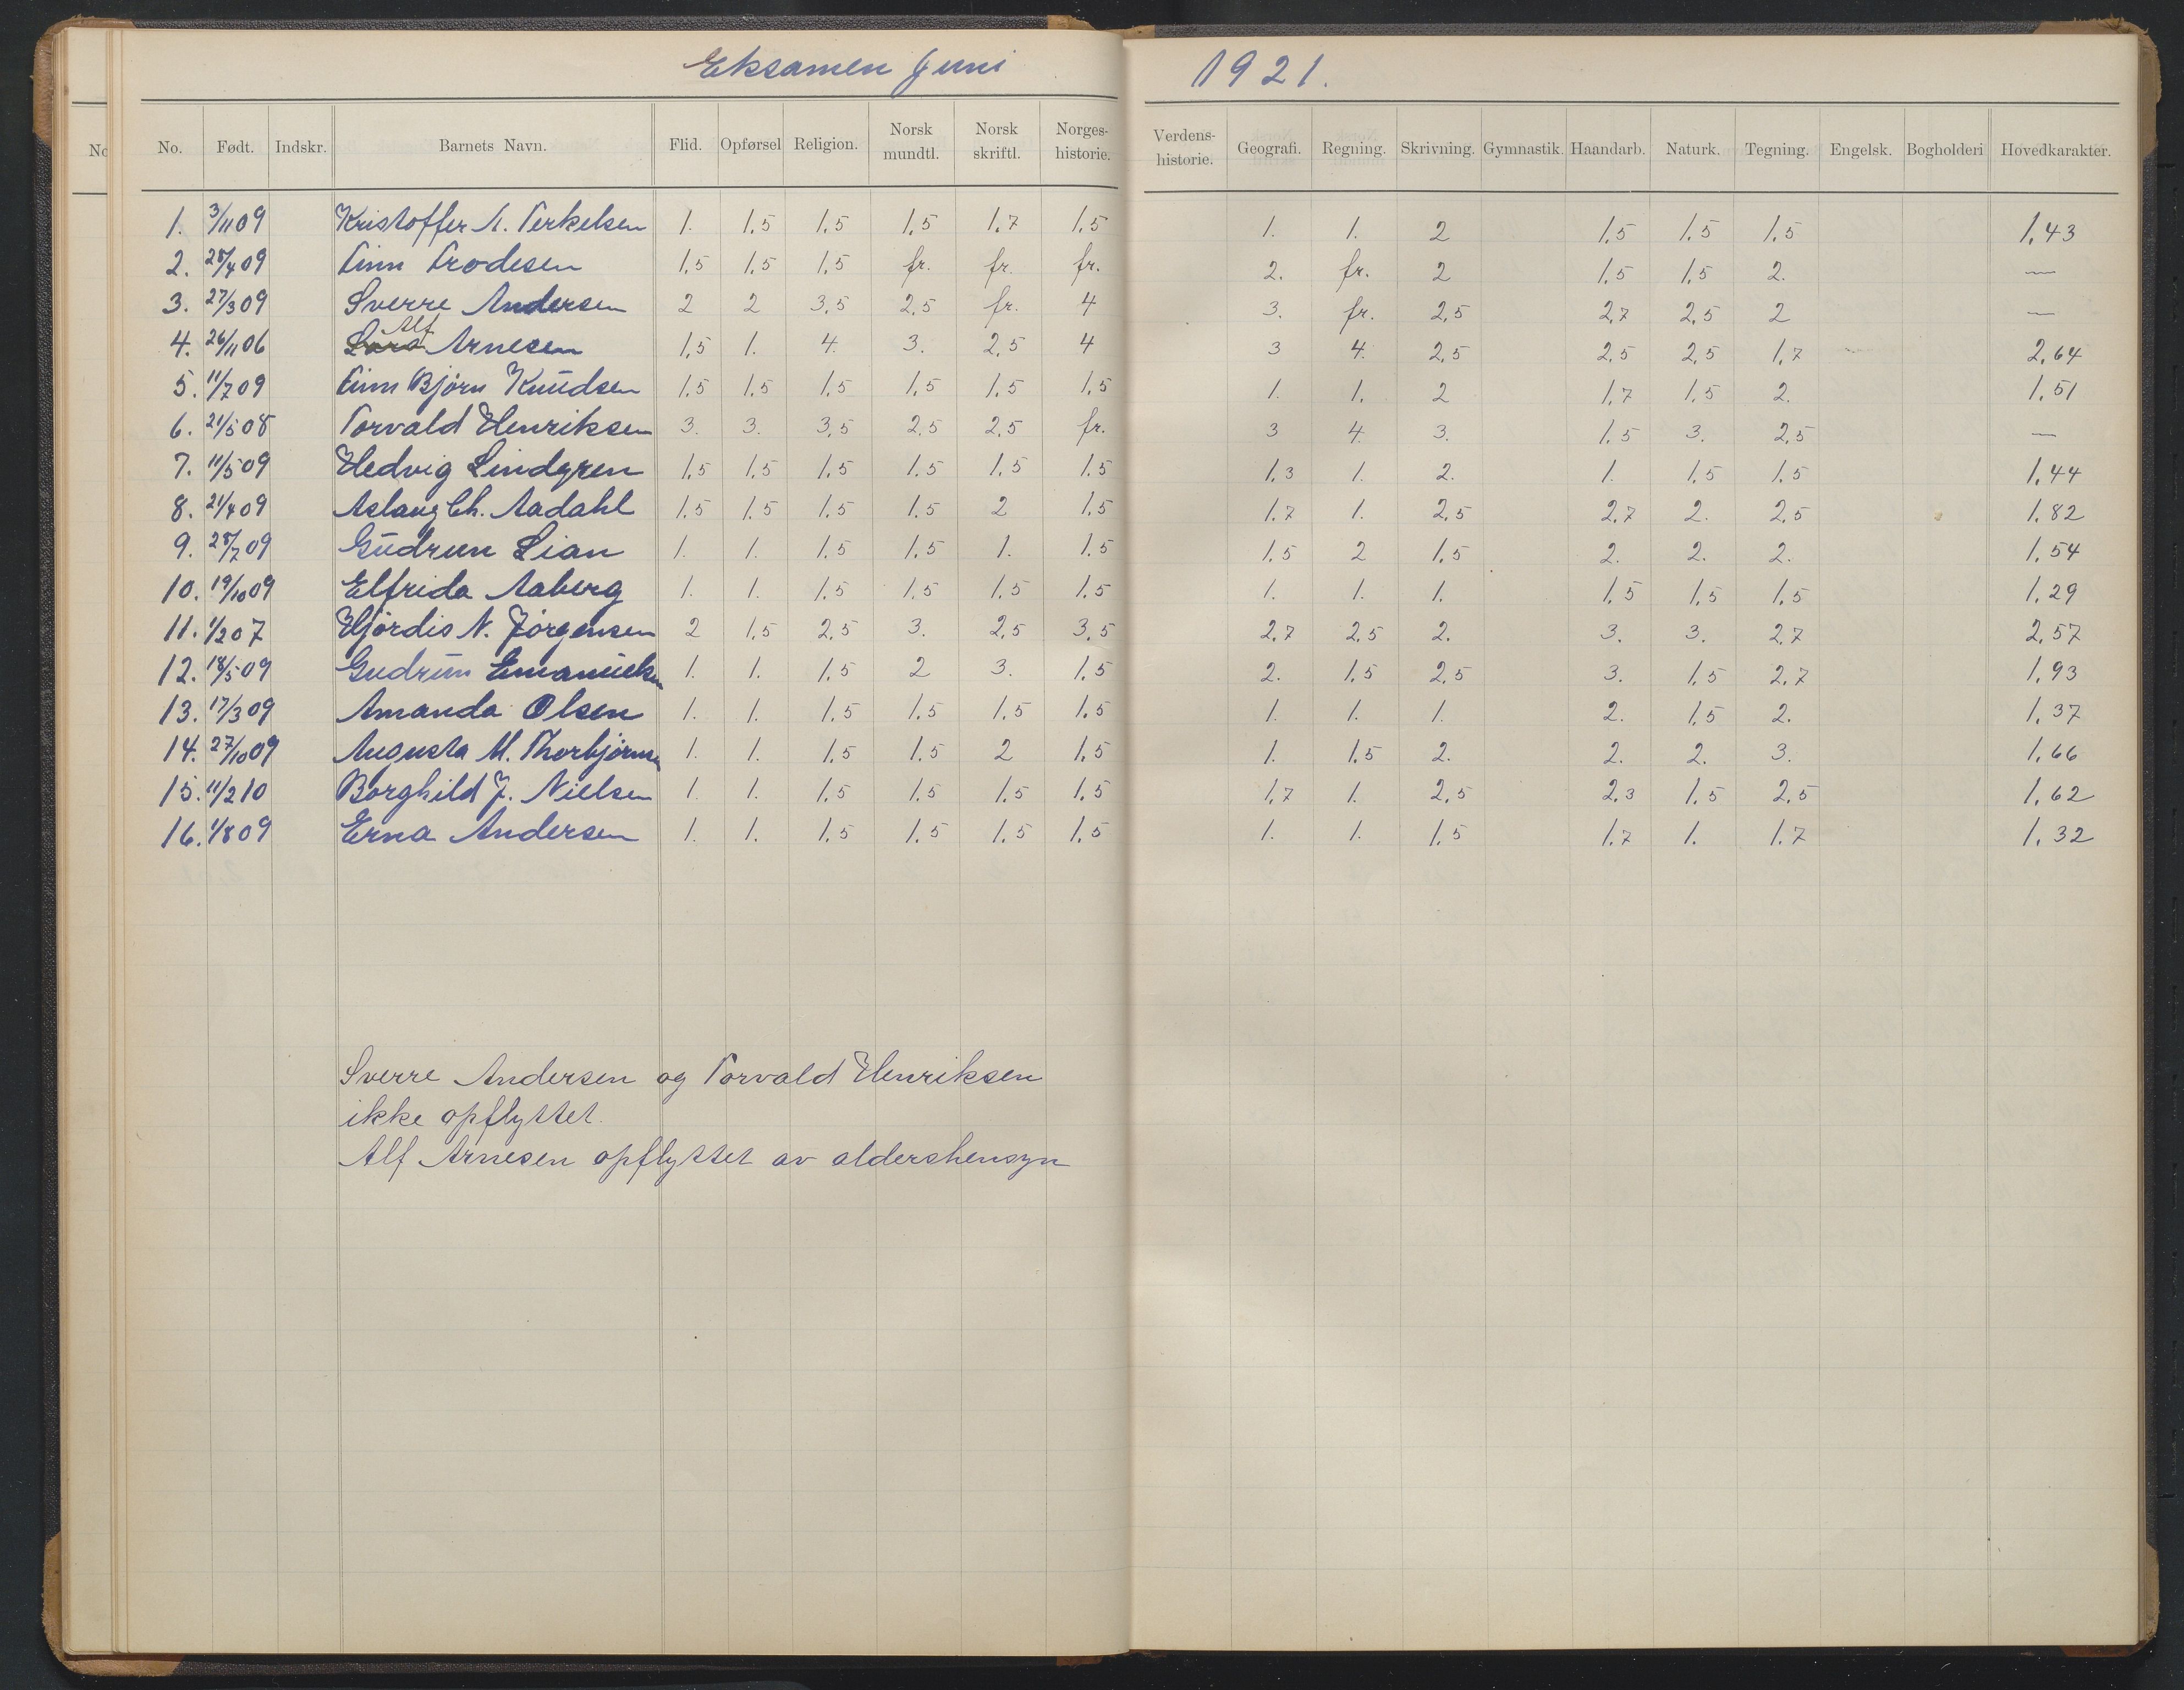 Eksamen Juni 1921.
No. Født. Indskr. Barnets Navn. Flid. Opførsel Religion. Norsk mundtl. Norsk skriftl. Norges-historie. Verdens-historie. Geografi. Regning. Skrivning. Gymnastik. Haandarb. Naturk. Tegning. Engelsk. Bogholderi Hovedkarakter.
1. 3/11 09 Kristoffer A. Terkelsen 1. 1,5 1,5 1,5 1,7 1,5 1. 1. 2 1,5 1,5 1,5 1,43
2. 28/4 09 Finn Frodesen 1,5 1,5 1,5 fr. fr. fr. 2. fr. 2 1,5 1,5 2. —
3. 27/3 09 Sverre Andersen 2 2 3,5 2,5 fr. 4 3. fr. 2,5 2,7 2,5 2 —
4. 26/11 06 Lars Alf Arnesen 1,5 1. 4. 3. 2,5 4 3 4. 2,5 2,5 2,5 1,7 2,64
5. 11/7 09 Finn Bjørn Knudsen 1,5 1,5 1,5 1,5 1,5 1,5 1. 1. 2 1,7 1,5 2. 1,51
6. 21/5 08 Torvald Henriksen 3. 3. 3,5 2,5 2,5 fr. 3 4. 3. 1,5 3. 2,5 —
7. 11/5 09 Hedvig Lindgren 1,5 1,5 1,5 1,5 1,5 1,5 1,3 1. 2. 1. 1,5 1,5 1,44
8. 21/4 09 Aslaug Ch. Aadahl 1,5 1,5 1,5 1,5 2 1,5 1,7 1. 2,5 2,7 2. 2,5 1,82
9. 28/7 09 Gudrun Lian 1. 1. 1,5 1,5 1. 1,5 1,5 2 1,5 2. 2. 2. 1,54
10. 19/10 09 Elfrida Aaberg 1. 1. 1,5 1,5 1,5 1,5 1. 1. 1. 1,5 1,5 1,5 1,29
11. 1/2 07 Hjørdis N. Jørgensen 2 1,5 2,5 3. 2,5 3,5 2,7 2,5 2. 3. 3. 2,7 2,57
12. 18/5 09 Gudrun Emanuelsen 1. 1. 1,5 2 3. 1,5 2. 1,5 2,5 3. 1,5 2,7 1,93
13. 17/3 09 Amanda Olsen 1. 1. 1,5 1,5 1,5 1,5 1. 1. 1. 2. 1,5 2. 1,37
14. 27/10 09 Augusta M. Thorbjørnsen 1. 1. 1,5 1,5 2 1,5 1. 1,5 2. 2. 2. 3. 1,66
15. 11/2 10 Borghild J. Nielsen 1. 1. 1,5 1,5 1,5 1,5 1,7 1. 2,5 2,3 1,5 2,5 1,62
16. 1/8 09 Erna Andersen 1. 1. 1,5 1,5 1,5 1,5 1. 1. 1,5 1,7 1. 1,7 1,32
Sverre Andersen og Torvald Henriksen
ikke opflyttet.
Alf Arnesen opflyttet av aldershensyn